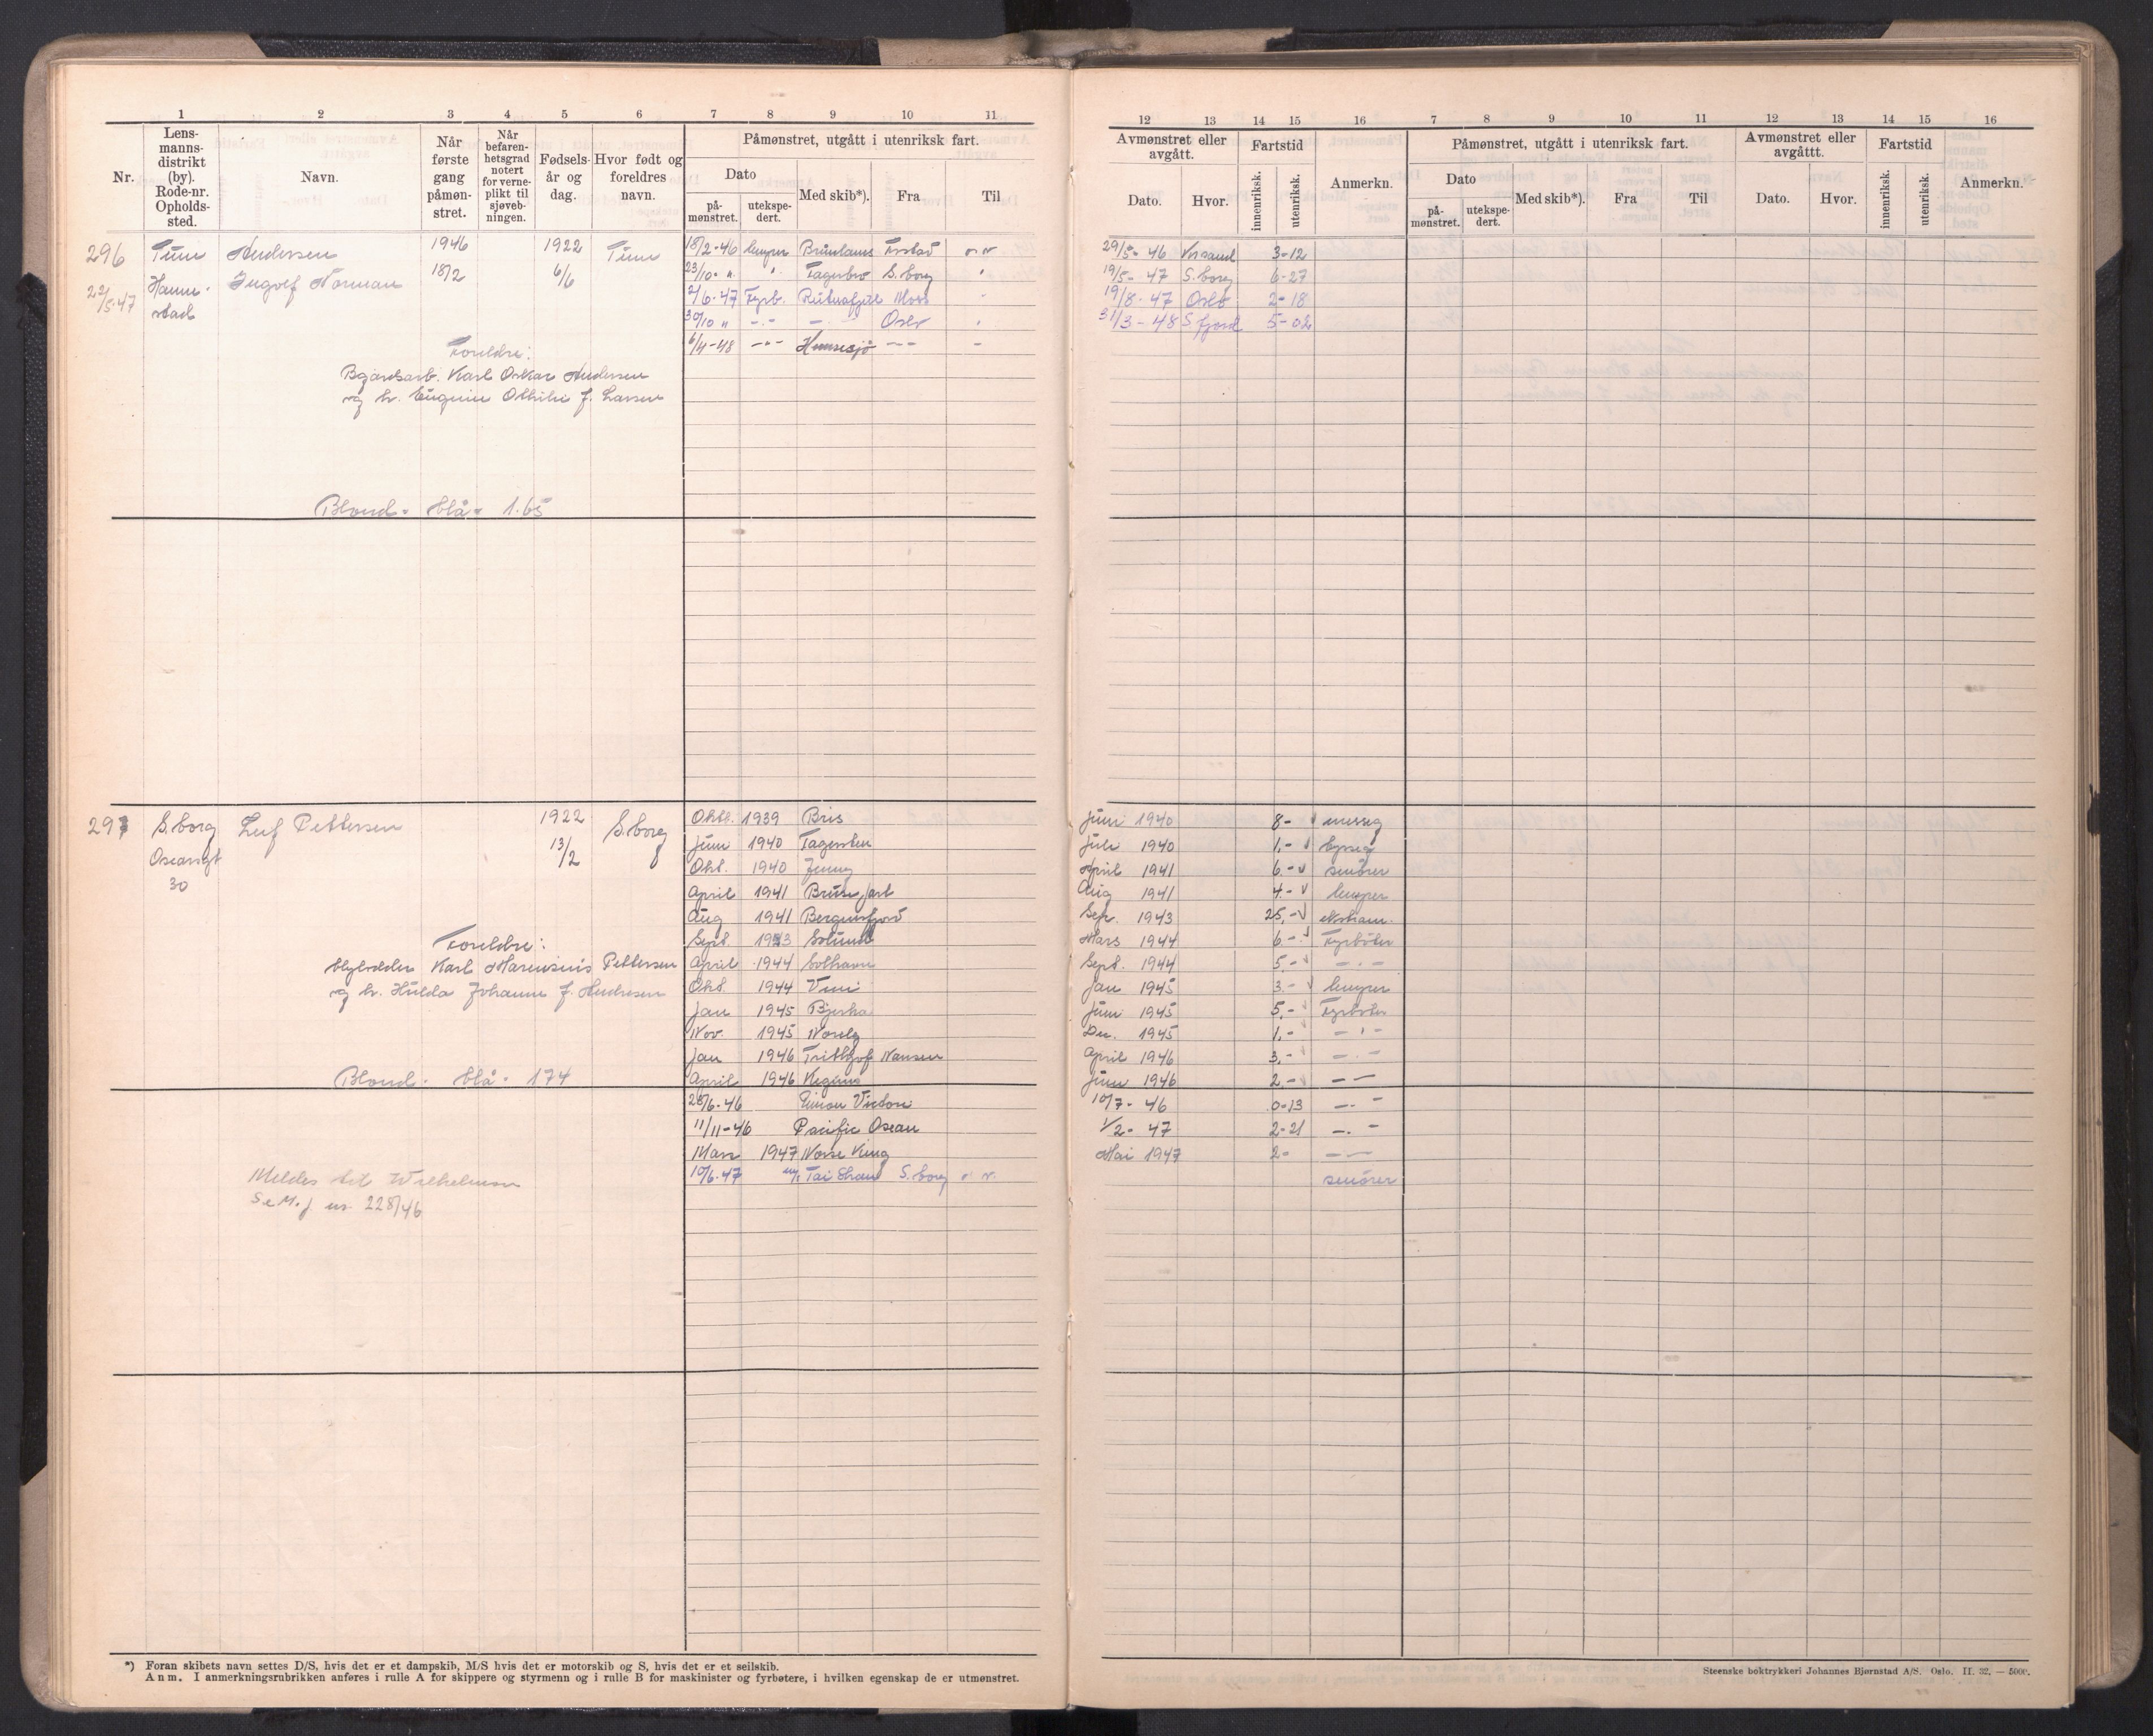 1 2 3 4 5 6 7 8 9 10 11
Nr.
Lens-
manns-
distrikt
(by).
Rode-nr.
Opholds-
sted.
Navn.
Når
første
gang
påmøn-
stret.
Når
befaren-
hetsgrad
notert
for verne-
plikt til
sjøveb-
ningen.
Fødsels-
år og
dag.
Hvor født og
foreldres
navn.
Påmønstret, utgått i utenriksk fart.
Dato
på-
mønstret.
utekspe-
dert.
Med skib*).
Fra
Til
296 Tune Andersen 1946 1922 Tune 18/2-46 lemper Brunlanes
Hanne-
stad
Ingolf Norman 18/2 6/6 23/10- " Fagerbro S.borg
22/5-47
2/6-47 Fyrb. Moss
30/10 " -"- Oslo
6/4-48 -"- Humsesjø
Foreldre:
Bgårdsarb. Karl Oskar Andersen
og h. Eugenie Othilie f. Larsen
Blond - blå - 1.65
297 S.borg Leif Pettersen 1922 S.borg Okt. 1939 Bris
Oscarsgt 13/2 Juni 1940 Fagersten
30 Okt. 1940 Jenny
April 1941 Bruse Jarl
Aug 1941 Bergensfjord
Foreldre: Sept. 1943 Solund
Karl Marensius Pettersen April 1944 Solhavn
og h. Hulda Johanne f. Andresen Okt. 1944 Vivi
Jan 1945 Bjerka
Nov. 1945 Norelg
Jan 1946 Fridtjof Nansen
Blond - blå - 174 April 1946
26/6-46
11/11-46 Pacific Osean
Mars 1947 Norse King
Meldes til Wilhelmsen 10/6-47 m/s Tai Shan S.borg
S e M. J nr. 228/46
*) Foran skibets navn settes D/S, hvis det er et dampskib, M/S hvis det er motorskib og S, hvis det er et seilskib.
Anm. I anmerkningsrubrikken anføres i rulle A for skippere og styrmenn og i rulle B for maskinister og fyrbøtere, i hvilken egenskap de er utmønstret.
12 13 14 15 16 7 8 9 10 11 12 13 14 15 16
Avmønstret eller
avgått.
Dato.
Hvor.
Fartstid
innenriksk.
utenriksk.
Anmerkn.
Påmønstret, utgått i utenriksk fart.
Dato
på-
mønstret.
utekspe-
dert.
Med skib*).
Fra
Til
Avmønstret eller
avgåttt.
Dato.
Hvor.
Fartstid
innenriksk.
utenriksk.
Anmerkn.
29/5- 46 Krsand 3-12
19/5- 47 S.borg 6-27
19/8-47 Oslo 2-18
31/3-48 S fjord 5-02
Juni 1940 8-
Juli 1940 1.-
April 1941 6.- smører
Aug 1941 4.- lemper
Sept. 1943 25.-
Mars 1944 6.- Fyrbøter
Sept. 1944 5.- -"-
Jan 1945 3.- lemper
Juni 1945 5.- Fyrbøter
Des. 1945 1.- -"-
April 1946 3.- -"-
Juni 1946 2.- -"-
10/7- 46 0-13 -"-
1/2- 47 2-21 -"-
Mai 1947 2- -"-
smører
Steenske boktrykkeri Johannes Bjørnstad A/S. Oslo. II. 32. — 5000.